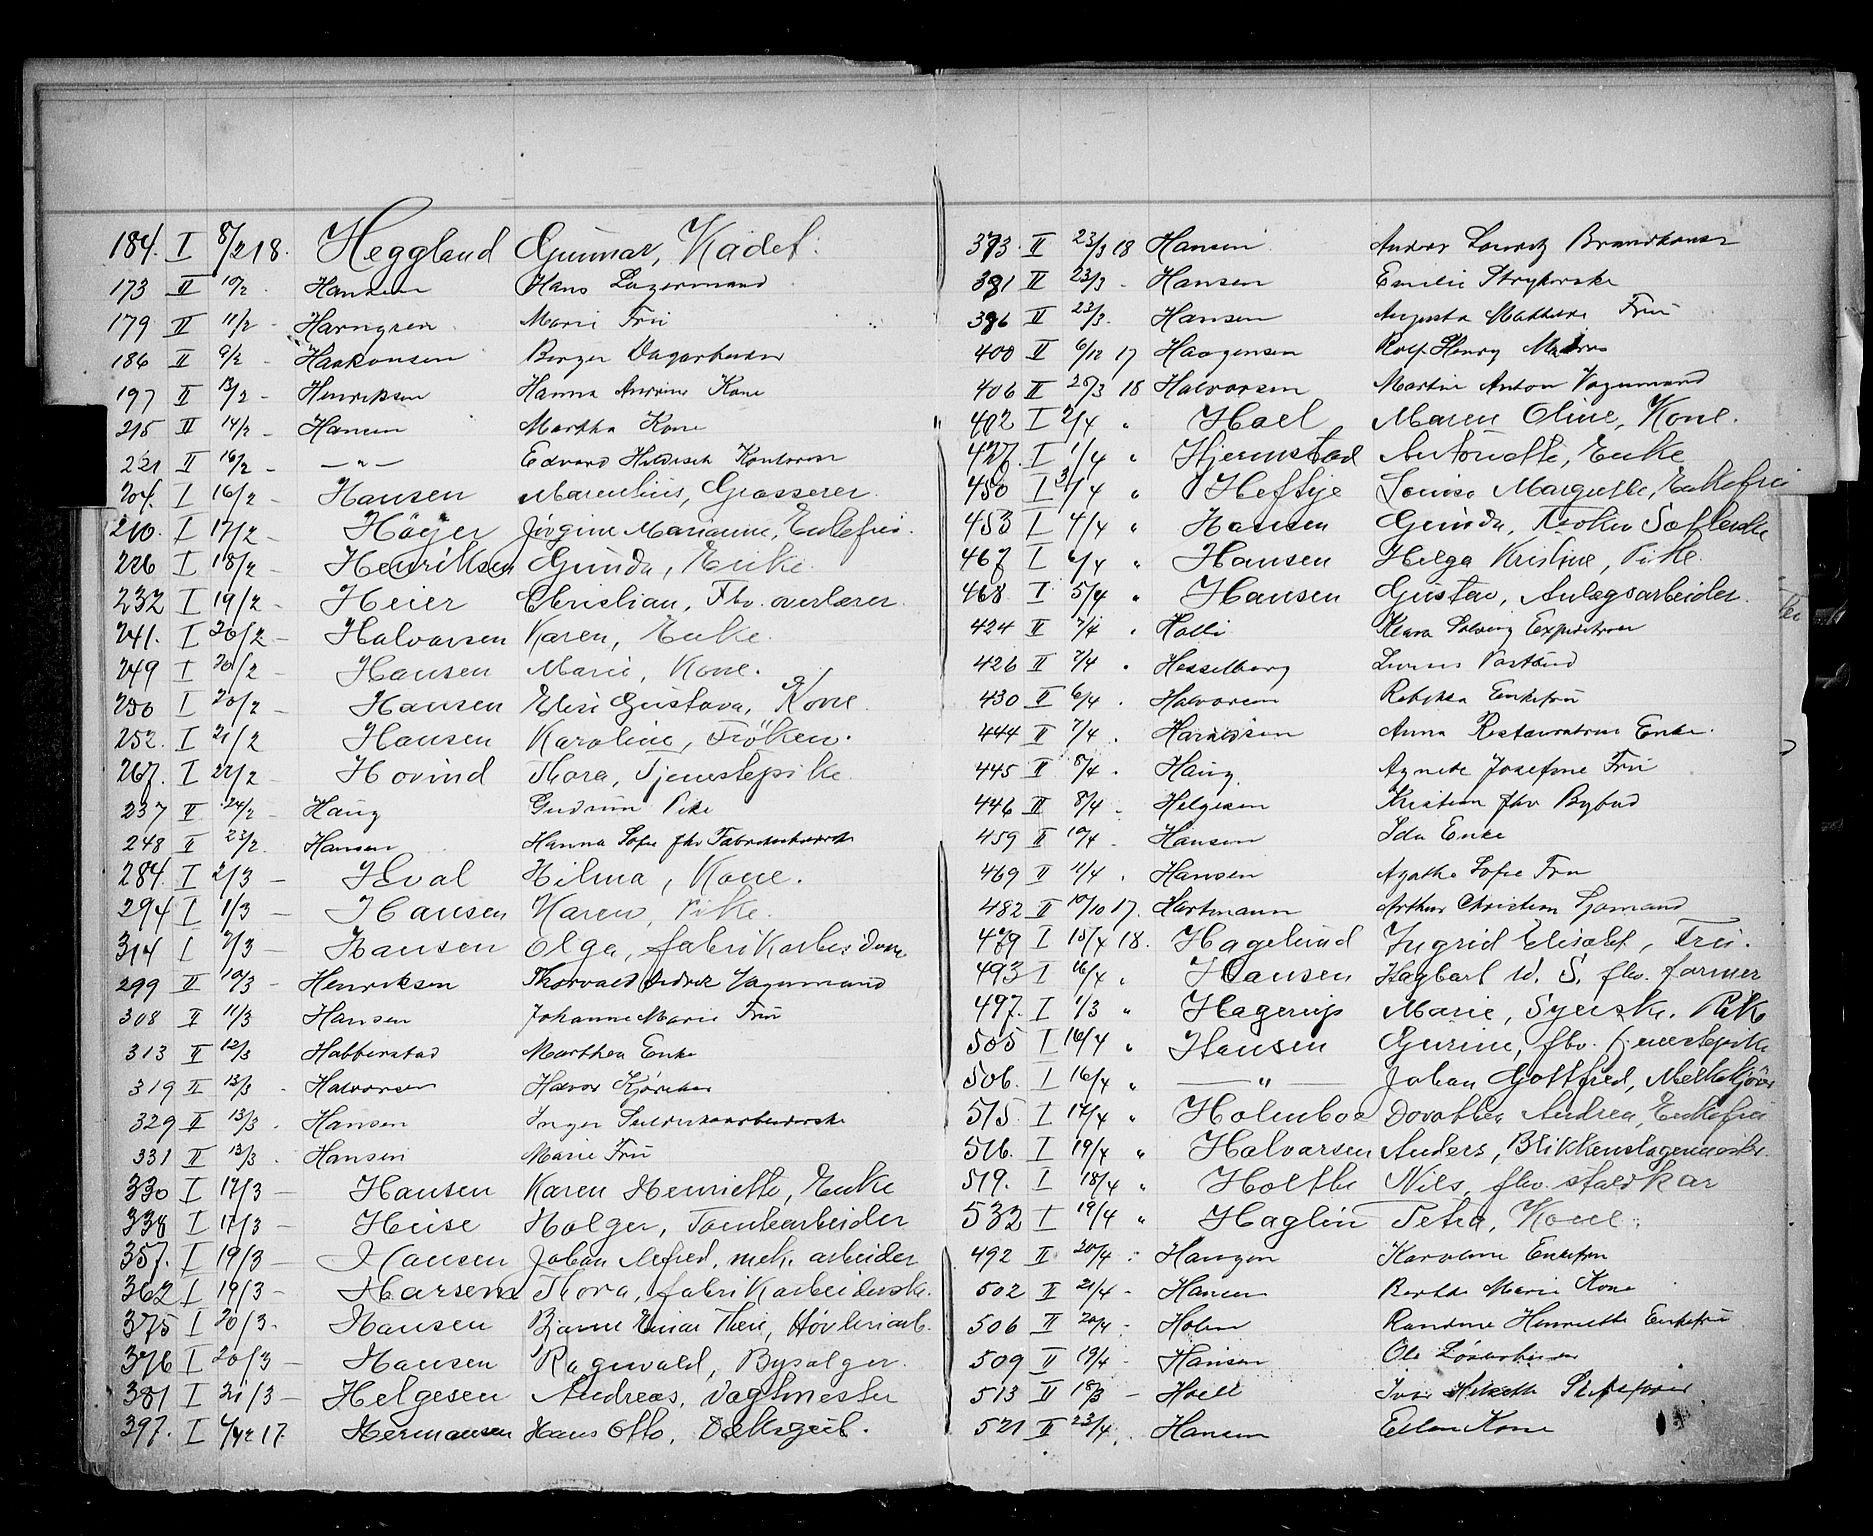 184. I 8/2 18. Heggland Gunnar, Kadet.
173 II 10/2 - Hansen Hans Lagermand
179 II 11/2 - Harngren Marie Fru
186 II 9/2 - Haakonsen Birger
197 II 13/2 - Henriksen Hanna Kone
215 II 14/2 - Hansen Martha Kone
221 II 16/2 - —"— Edvard Kontorm
204. I 16/2 - Hansen Marentius, Grosserer.
210. I 17/2 - Høyer Jørgine Marianne, Enkefru.
226 I 18/2 - Henriksen Gunda, Enke.
232 I 19/2 - Heier Christian, Fhv. overlærer.
241. I 20/2 - Halvorsen Karen, Enke.
249 I 20/2 - Hansen Marie, Kone.
250 I 20/2 - Hansen Elise Gustava, Kone.
252. I 21/2 Hansen Karoline, Frøken.
267. I 22/2 - Hovind Thora, Tjenestepike.
237 II 24/2 - Haug Gudrun Pike
248 II 23/2. Hansen Hanna Sofie fhv
284. I 2/3 - Hval Hilma, Kone.
294 I 1/3 - Hansen Karen, Pike.
314 I 7/3 - Hansen Olga, fabrikarbeiderske
299 II 10/3 - Henriksen Thorvald Fredrik Vognmand
308 II 11/3 Hansen Johanne Marie Fru
313 II 12/3 Habberstad Marthea Enke
319 II 13/3 . Halvorsen Halvor Kjørekar
329 II 13/3 . Hansen Inger
331 II 13/3 . Hansen Marie Fru
330 I 17/3 - Hansen Karen Henriette, Enke
338 I 17/3 - Heise Holger, Tomtearbeider
357. I 19/3 - Hansen Johan Alfred, mek. arbeider
362 I 19/3 - Hansen Thora, fabrikarbeiderske.
375 I 20/3 - Hansen Bjarne Einar Høvleriarb.
376 I 20/3 - Hansen Ragnvald, Bysælger.
381 I 21/3 - Helgesen Andreas, Vagtmester
397. I 4/12 17. Hermansen Hans Otto, Dæksgut.
373. II 23/3 18 Hansen Anders Lauritz Brandkonst
381 II 23/3 - Hansen Emilie Strykerske
386 II 22/3. Hansen Augusta Mathilde Fru
400 II 6/12 17 Haagensen Rolf Henry Matros
406 II 25/3 18 Halvorsen Martin Anton Vognmand
402 I 2/4 " Hoel Maren Oline, Kone.
427. I 1/4 " Hjermstad Antonette, Enke
450 I 3/4 " Heftye Louise Margrethe, Enkefru
453 I 4/4 " Hansen Gunda, Frøken
467 I 6/4 " Hansen Helga Kristine, Pike.
468. I 5/4 " Hansen Gustav, Anlægsarbeider.
424 II 7/4 " Holli Klara Solveig Expeditrice
426 II 7/4 " Hesselberg Postbud
430 II 6/4 . Halvorsen Rebekka Enkefru
444 II 7/4 . Haraldsen Anna Restauratrice Enke.
445 II 8/4 . Haug Agnete Josefine Fru
446 II 8/4 - Helgesen Kristian fhv Bybud
459 II 10/4 . Hansen Ida Enke
469 II 11/4 . Hansen Agathe Sofie Fru
482 II 10/10 17. Hartmann Arthur Christian Sjømand
479 I 15/4 18. Hagelund Ingrid Elisabet, Fru.
493 I 16/4 " Hansen Hagbart W. S. fhv. farmer
497. I 1/3 " Hagerup Marie, Syerske. Pike
505 I 16/4 " Hansen Gurine, fhv. tjenestepike
506. I 16/4 " —"— Johan Gottfred, Melkekjører
515. I 17/4 " Holmboe Dorothea Andrea, Enkefru
516. I 19/4 " Halvorsen Anders, Blikkenslagermester.
519. I 18/4 " Holthe Nils, fhv. staldkar
532 I 19/4 " Haglin Petra, Kone.
492 II 20/4 : Haugen Karoline Enkefru
502 II 21/4 - Hansen Berthe Marie Kone
506 II 20/4 - Holm Randine Henriette Enkefru
509 II 19/4 - Hansen Ole
513 II 18/3 - Hoell
521 II 23/4 . Hansen Ellen Kone